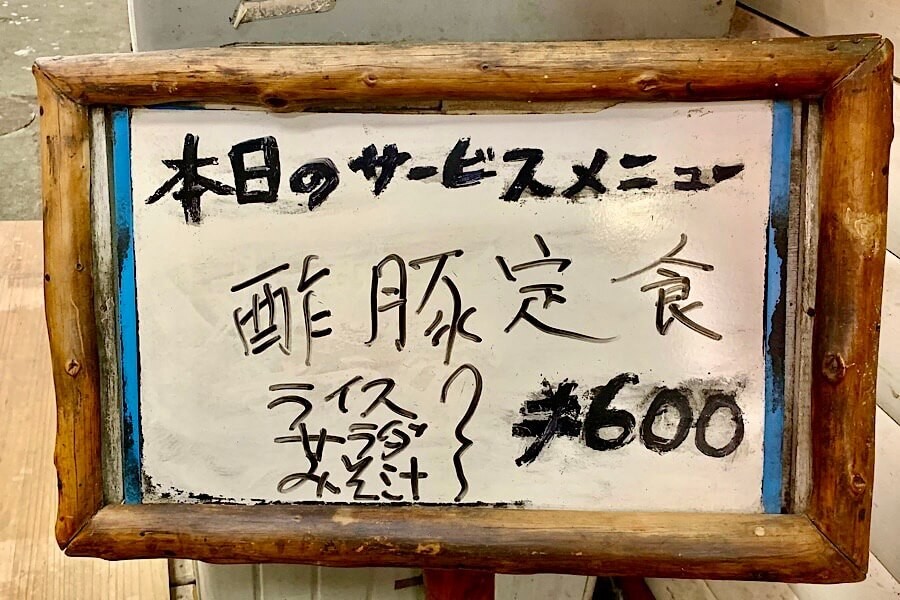 本日のサービスメニュー
酢豚定食
ライス
サラダ
みそ汁
¥600